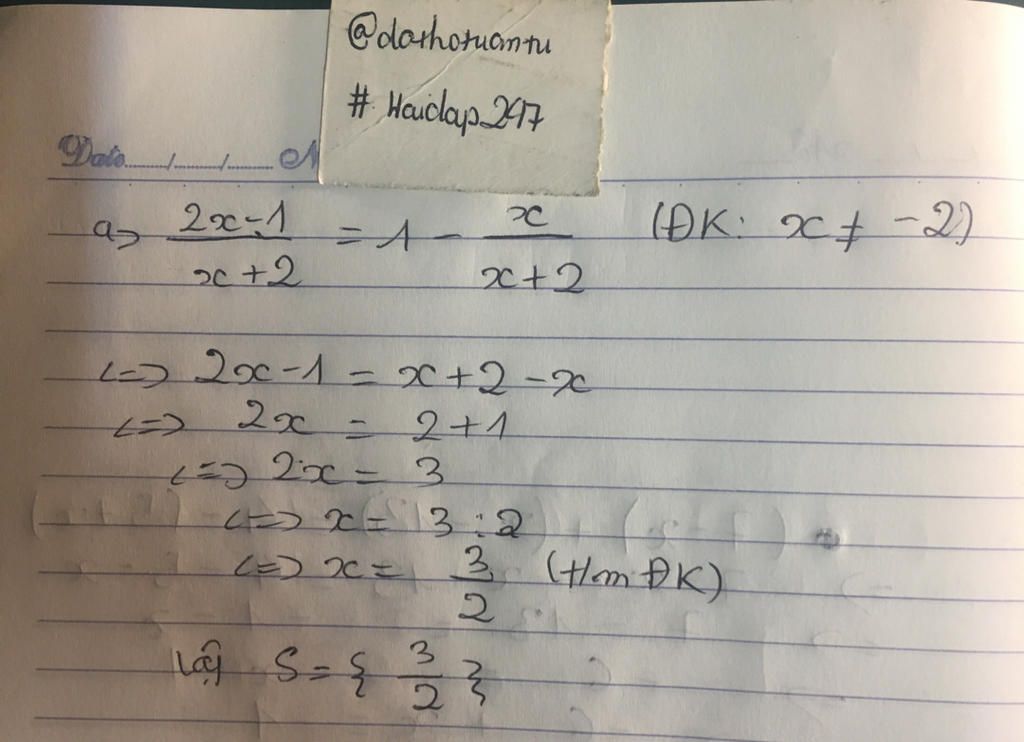 @dathotuantu
# Hoidap247
Date....../....../...... N
a> (2x-1)/(x+2) = 1 - x/(x+2) (ĐK: x ≠ -2)
<=> 2x-1 = x+2-x
<=> 2x = 2+1
<=> 2x = 3
<=> x = 3 : 2
<=> x = 3/2 (t/m ĐK)
Vậy S = { 3/2 }